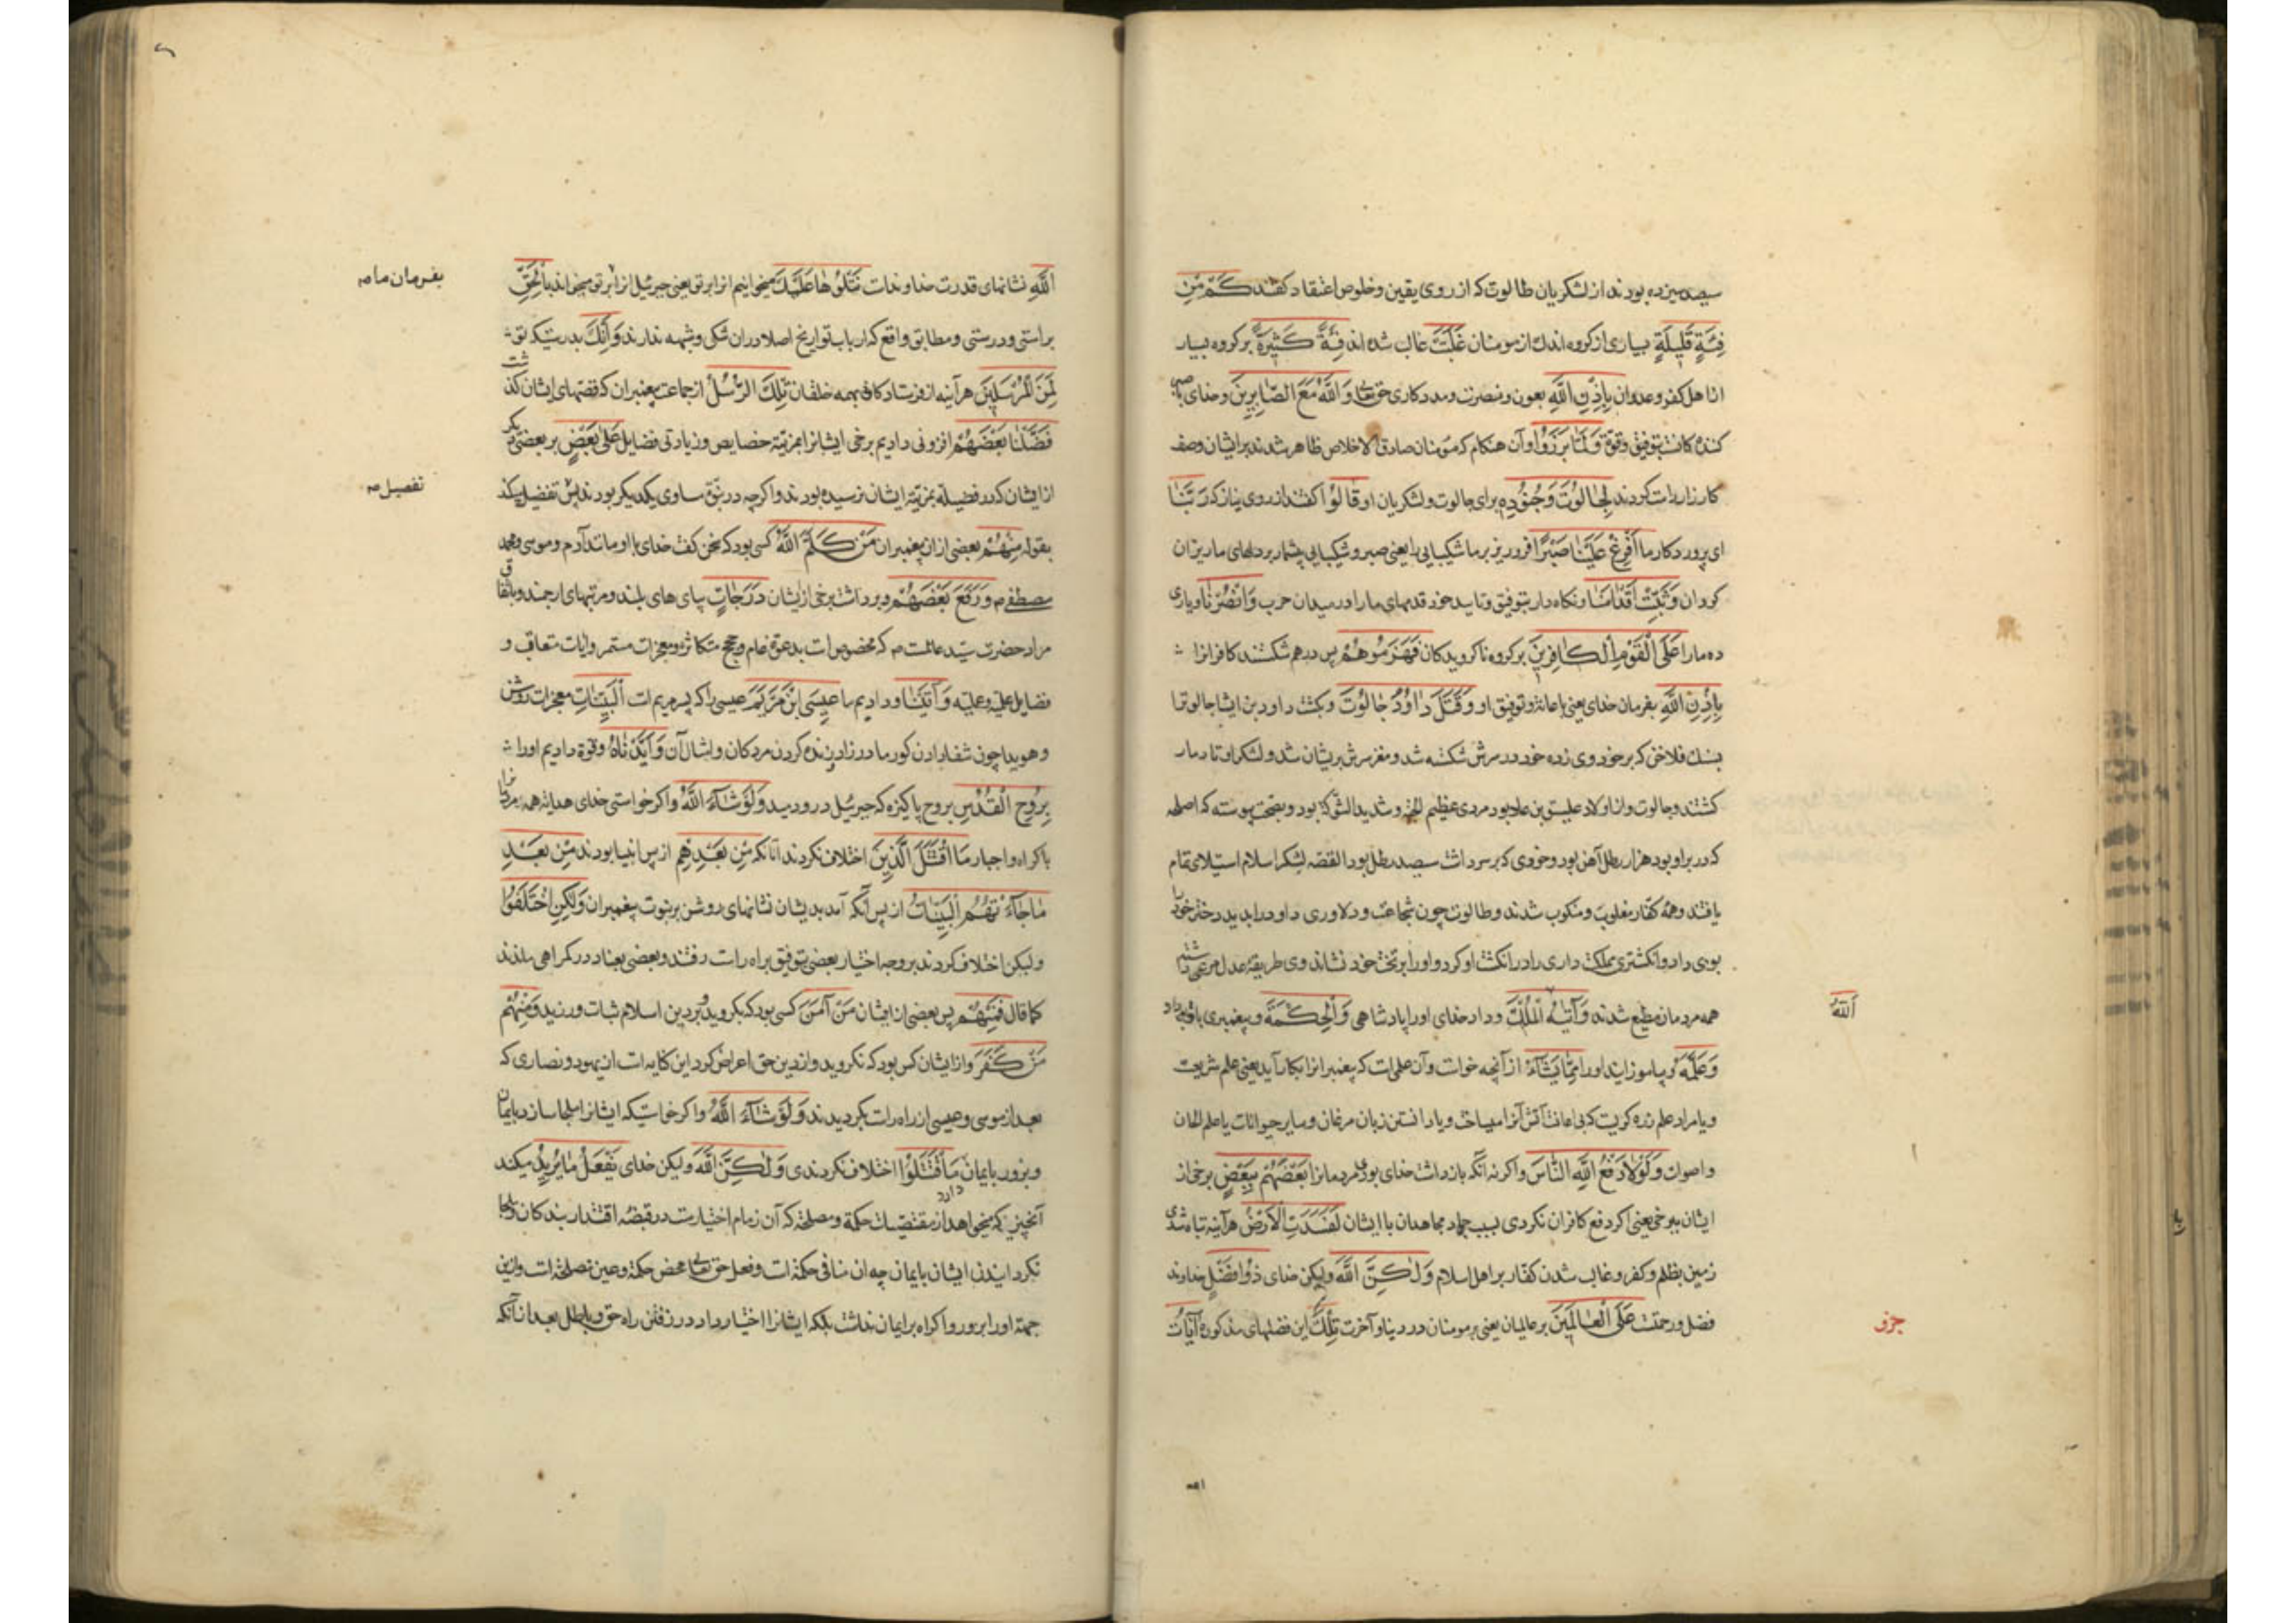 سیصد سیزده بودند از لشکریان طالوت که از روی یقین و خلوص اعتقاد گفتند كَمْ مِنْ
فِئَةٍ قَلِيلَةٍ بسیاری از گروه اندک از مومنان غَلَبَتْ غالب شده اند فِئَةً كَثِيرَةً بر گروه بسیار
از اهل کفر و عدوان بِإِذْنِ اللَّهِ بعون و نصرت و مددکاری حق تعالی وَ اللَّهُ مَعَ الصَّابِرِينَ و خدای با صبر
کننده کانست بتوفیق و قوة وَ لَمَّا بَرَزُوا و آن هنکام که مؤمنان صادق الاخلاص ظاهر شدند بر ایشان وصف
کارزار راست کردند لِجَالُوتَ وَ جُنُودِهِ برای جالوت و لشکریان او قَالُوا گفتند از روی نیاز که رَبَّنَا
ای پروردکار ما أَفْرِغْ عَلَيْنَا صَبْرًا فرو ریز بر ما شکیبایی را یعنی صبر و شکیبایی بیشمار بر دلهای ما ریزان
کردان وَ ثَبِّتْ أَقْدَامَنَا و نکاه دار بتوفیق و تایید خود قدمهای ما را در میدان حرب وَ انْصُرْنَا و یاری
ده ما را عَلَى الْقَوْمِ الْكَافِرِينَ بر کروه ناکرویدکان فَهَزَمُوهُمْ پس درهم شکستند کافرانرا
بِإِذْنِ اللَّهِ بفرمان خدای یعنی باعانت و توفیق او وَ قَتَلَ دَاوُدُ جَالُوتَ و بکشت داود بن ایشا جالوت را
بسنک فلاخن که بر خود وی زده خود در سرش شکسته شد و مغز سرش پریشان شد و لشکر او تا دمار
کشتند و جالوت و از اولاد علیق بن عاد بود مردی عظیم الجثه و شدید الشوکة بود و بصحت پیوسته که اصلحه
که در بر او بود هزار رطل آهن بود و خودی که بر سر داشت سیصد رطل بود القصه لشکر اسلام استیلای تمام
یافتند و همه کفار مغلوب و منکوب شدند و طالوت چون شجاعت و دلاوری داود را بدید دختر خود را
بوی داد و انکشتری مملکت داری را در انکشت او کرد و او را بر تخت خود نشاند وی طریقه عدل مرعی داشته
همه مردمان مطیع شدند وَ آتَيهُ الْمُلْكَ و داد خدای او را پادشاهی وَ الْحِكْمَةَ و پیغمبری باو داد
اَللهُ
وَ عَلَّمَهُ و بیاموزانید او را مِمَّا يَشَاءُ از آنچه خواست و آن علمست که پیغمبرانرا بکار آید یعنی علم شریعت
و یا مراد علم زره کریست که بی اعانت آتش آنرا میساخت و یا دانستن زبان مرغان و سایر حیوانات یا علم الحان
و اصوات وَ لَوْلَا دَفْعُ اللَّهِ النَّاسَ و اکر نه آنکه بازداشت خدای بودی مردمانرا بَعْضَهُمْ بِبَعْضٍ برخی از
ایشان ببرخی یعنی اکر دفع کافران نکردی بسبب جهاد مجاهدان با ایشان لَفَسَدَتِ الْأَرْضُ هرآینه تباه شدی
زمین بظلم و کفر و غالب شدن کفار بر اهل اسلام وَ لٰكِنَّ اللَّهَ ولیکن خدای ذُو فَضْلٍ خداوند
فضل و رحمتست عَلَى الْعَالَمِينَ بر عالمیان یعنی بر مومنان در دینا و آخرت تِلْكَ این فضلهای مذکوره آيَاتُ
جزو
اللَّهِ نشانهای قدرت خداوندست نَتْلُوهَا عَلَيْكَ میخوانیم انرا بر تو یعنی جبرئیل انرا بر تو میخواند بِالْحَقِّ
بفرمان ما صه
براستی و درستی و مطابق واقع که ارباب تواریخ اصلا دران شکی و شبهه ندارند وَ إِنَّكَ بدرستیکه تو
لَمِنَ الْمُرْسَلِينَ هرآینه از فرستادکانی بهمه خلقان تِلْكَ الرُّسُلُ از جماعت پیغمبران که قصهای ایشان کذشت
فَضَّلْنَا بَعْضَهُمْ افزونی دادیم برخی ایشانرا بمزیّة خصایص و زیادتی فضایل عَلَىٰ بَعْضٍ بر بعضی دیکر
از ایشان که در فضیلة بمزیّة ایشان نرسیده بودند و اکرچه در نبوّة مساوی یکدیکر بودند پس تفضیل میکند
تفصیل صه
بقوله مِنْهُمْ بعضی ازان پیغمبران مَنْ كَلَّمَ اللَّهُ کسی بود که سخن کفت خدای با او مانند آدم و موسی و محمد
مصطفی ص وَ رَفَعَ بَعْضَهُمْ و برداشت برخی از ایشان دَرَجَاتٍ پای های بلند و مرتبهای ارجمند و باتفاق
مراد حضرت سیّد عالمست صه که مخصوص است بدعوة عام و حجج متکاثره و معجزات مستمر و آیات متعاقب و
فضایل علمیّه و عملیّه وَ آتَيْنَا و دادیم ما عِيسَى ابْنَ مَرْيَمَ عیسی را که پسر مریم است الْبَيِّنَاتِ معجزات روشن
و هویدا چون شفا دادن کور مادرزاد و زنده کردن مردکان و امثال آن وَ أَيَّدْنَاهُ و قوة دادیم او را
بِرُوحِ الْقُدُسِ بروح پاکیزه که جبرئیل در و دمید وَ لَوْ شَاءَ اللَّهُ و اکر خواستی خدای هدایة همه مردمانرا
باکراه و اجبار مَا اقْتَتَلَ الَّذِينَ اختلاف نکردند آنانکه مِنْ بَعْدِهِمْ از پس انبیا بودند مِنْ بَعْدِ
مَا جَاءَتْهُمُ الْبَيِّنَاتُ از پس آنکه آمد بدیشان نشانهای روشن بر نبوت پیغمبران وَ لٰكِنِ اخْتَلَفُوا
ولیکن اختلاف کردند بر وجه اختیار بعضی بتوفیق براه راست رفتند و بعضی بعناد در کمراهی ماندند
کما قال فَمِنْهُمْ پس بعضی از ایشان مَنْ آمَنَ کسی بود که بکروید و بر دین اسلام ثبات ورزید وَ مِنْهُمْ
مَنْ كَفَرَ و از ایشان کس بود که نکروید و از دین حق اعراض کرد این کنایه است از یهود و نصاری که
بعد از موسی و عیسی از راه راست بکردیدند وَ لَوْ شَاءَ اللَّهُ و اکر خواستیکه ایشانرا ملجا سازد بایمان
و بزور بایمان مَا اقْتَتَلُوا اختلاف نکردندی وَ لٰكِنَّ اللَّهَ ولیکن خدای يَفْعَلُ مَا يُرِيدُ میکند
آنچیزیکه میخواهد از مقتضیات حکمة و مصلحة که آن زمام اختیارست در قبضه اقتدار بندکان دارد و ملجا
نکردانیدن ایشان بایمان چه ان منافی حکمة است و فعل حق تعالی محض حکمة و عین مصلحة است و ازین
جهة او را بزور و اکراه بر ایمان نداشت بلکه ایشانرا اختیار داد در رفتن راه حق و باطل بعد از آنکه